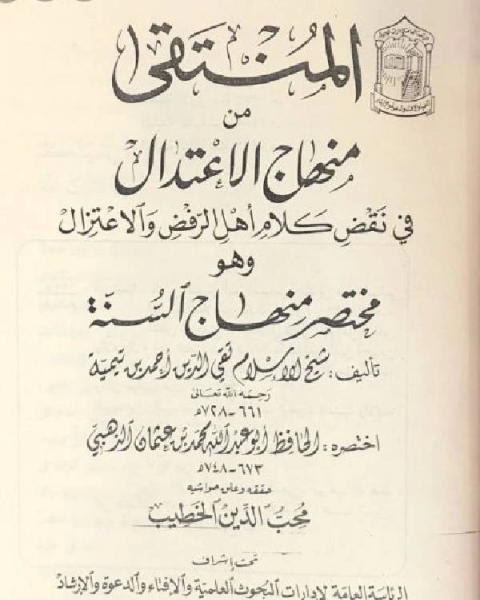 المنتقى
من
منهاج الاعتدال
في نقض كلام أهل الرفض والاعتزال
وهو
مختصر منهاج السنة
تأليف: شيخ الإسلام تقي الدين أحمد بن تيمية
رحمه الله تعالى
٦٦١-٧٢٨هـ
اختصره: الحافظ أبو عبد الله محمد بن عثمان الذهبي
٦٧٣-٧٤٨هـ
حققه وعلق حواشيه
محب الدين الخطيب
تحت إشراف
الرئاسة العامة لإدارات البحوث العلمية والإفتاء والدعوة والإرشاد